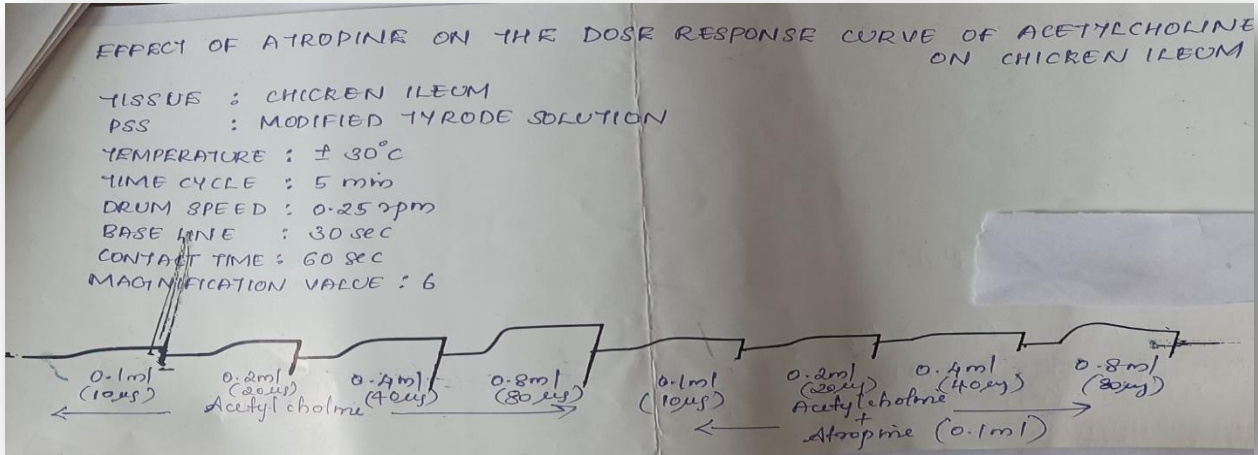 EFFECT OF ATROPINE ON THE DOSE RESPONSE CURVE OF ACETYLCHOLINE
ON CHICKEN ILEUM
TISSUE : CHICKEN ILEUM
PSS : MODIFIED TYRODE SOLUTION
TEMPERATURE : ± 30°C
TIME CYCLE : 5 min
DRUM SPEED : 0.25 rpm
BASE LINE : 30 sec
CONTACT TIME : 60 sec
MAGNIFICATION VALUE : 6
0.1ml 0.2ml 0.4ml 0.8ml 0.1ml 0.2ml 0.4ml 0.8ml
(10µg) (20µg) (40µg) (80µg) (10µg) (20µg) (40µg) (80µg)
Acetylcholine Acetylcholine
+
Atropine (0.1ml)